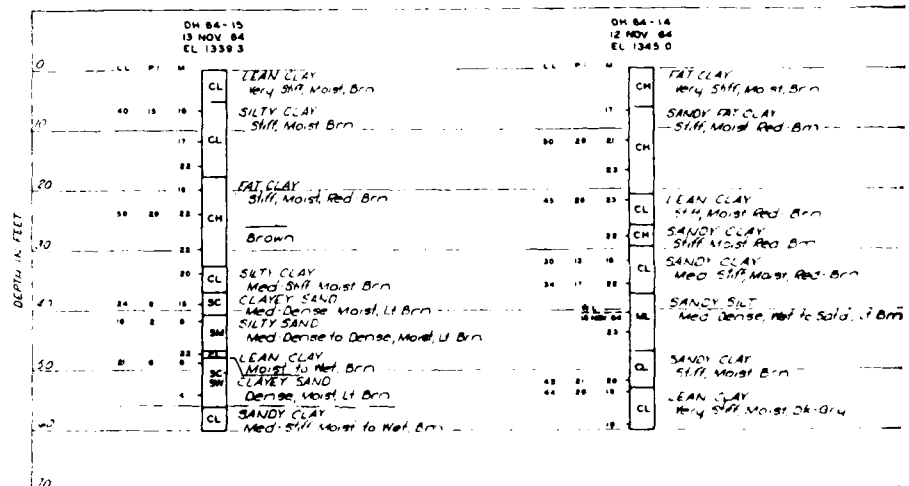 DH 84-15
13 NOV. 84
EL 1339.3
LL PI M
CL LEAN CLAY
Very Stiff, Moist, Brn
40 15 16 SILTY CLAY
Stiff, Moist Brn
17 CL
22
19 FAT CLAY
Stiff, Moist, Red-Brn
22 CH
Brown
22
20 CL SILTY CLAY
Med-Stiff Moist Brn
SC CLAYEY SAND
Med-Dense Moist, Lt Brn
SM SILTY SAND
Med Dense to Dense, Moist, Lt Brn
22 CL LEAN CLAY
Moist to Wet, Brn
SC
SW CLAYEY SAND
Dense, Moist, Lt Brn
4
CL SANDY CLAY
Med-Stiff Moist to Wet, Brn
DH 84-14
12 NOV. 84
EL 1345.0
LL PI M
CH FAT CLAY
Very Stiff, Moist, Brn
17 SANDY FAT CLAY
Stiff, Moist Red-Brn
50 29 21 CH
23
45 23 CL LEAN CLAY
Stiff, Moist Red-Brn
22 CH SANDY CLAY
Stiff Moist Red Brn
30 13 CL SANDY CLAY
Med Stiff, Moist, Red-Brn
34 17 22
ML SANDY SILT
Med Dense, Wet to Satd, Lt Brn
23
CL SANDY CLAY
Stiff, Moist Brn
21 20
CL LEAN CLAY
Very Stiff Moist, Dk-Gry
DEPTH IN FEET
0
10
20
30
40
50
60
70